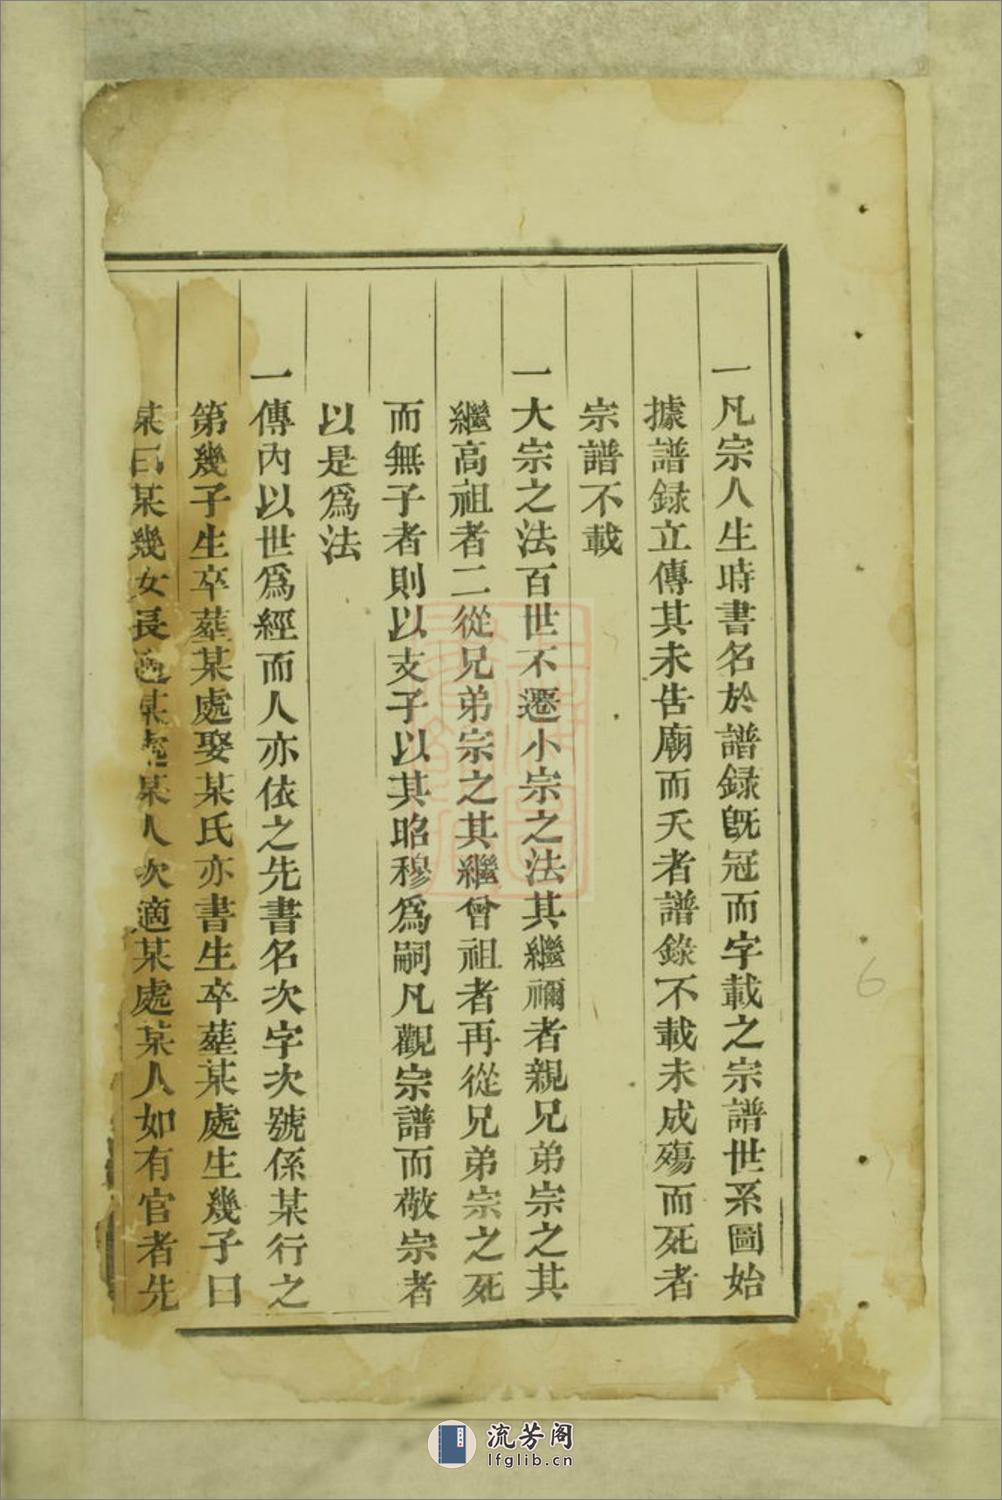 一凡宗人生時書名於譜録旣冠而字載之宗譜世系圖始
據譜録立傳其未告廟而夭者譜錄不載未成殤而死者
宗譜不載
一大宗之法百世不遷小宗之法其繼禰者親兄弟宗之其
繼高祖者二從兄弟宗之其繼曾祖者再從兄弟宗之死
而無子者則以支子以其昭穆爲嗣凡觀宗譜而敬宗者
以是爲法
一傳內以世爲經而人亦依之先書名次字次號係某行之
第幾子生卒塟某處娶某氏亦書生卒塟某處生幾子曰
某曰某幾女長適某處某人次適某處某人如有官者先
6
流芳阁
lfglib.cn